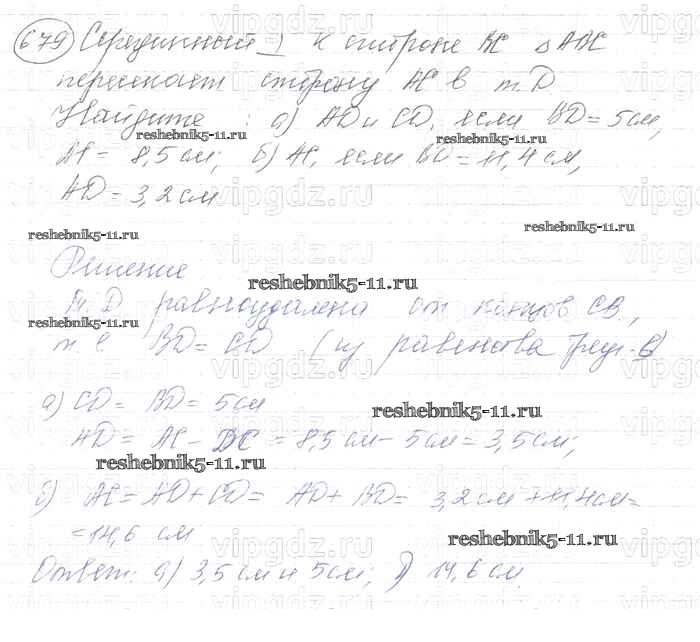 679 Серединный ⊥ к стороне BC △ABC
пересекает сторону AC в т. D
Найдите: а) AD и CD, если BD = 5 см,
reshebnik5-11.ru reshebnik5-11.ru
AC = 8,5 см; б) AC, если BD = 11,4 см,
AD = 3,2 см
reshebnik5-11.ru reshebnik5-11.ru
Решение
reshebnik5-11.ru
Т. D равноудалена от концов CB,
reshebnik5-11.ru
т.е. BD = CD (из равенства треуг-в)
а) CD = BD = 5 см
reshebnik5-11.ru
AD = AC - DC = 8,5 см - 5 см = 3,5 см;
reshebnik5-11.ru
б) AC = AD + CD = AD + BD = 3,2 см + 11,4 см =
= 14,6 см
reshebnik5-11.ru
Ответ: а) 3,5 см и 5 см; б) 14,6 см.
vipgdz.ru